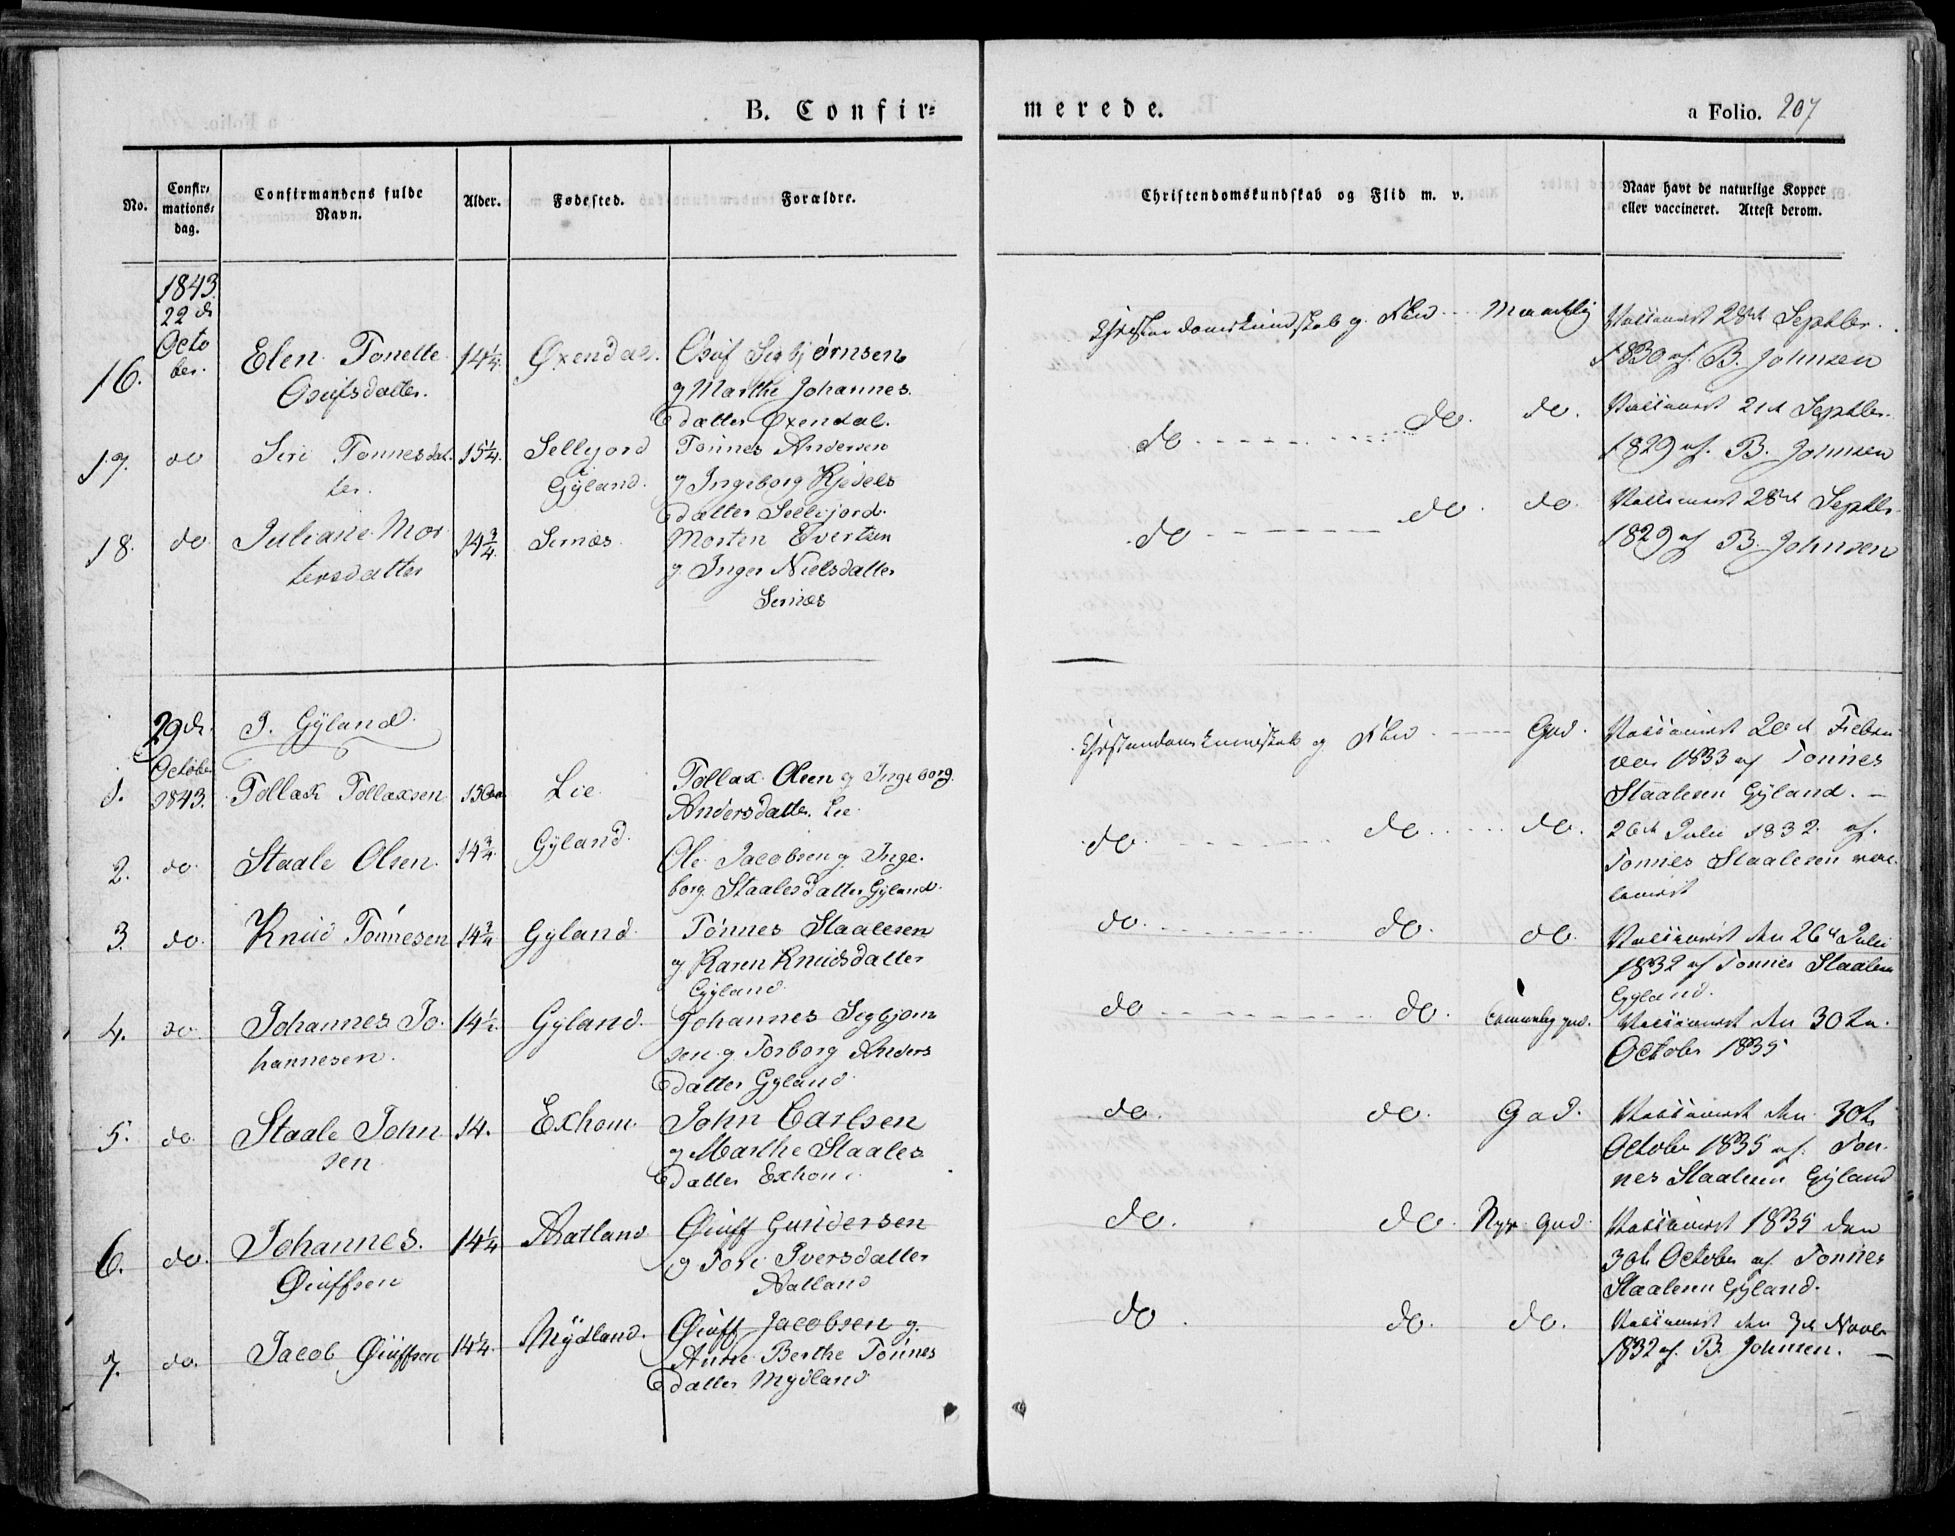 B. Confir=
merede.
a Folio. 207
No.
Confir=
mations=
dag.
Confirmandens fulde
Navn.
Alder.
Fødested.
Forældre.
Christendomskundskab og Flid m. v.
Naar havt de naturlige Kopper
eller vaccineret. Attest derom.
1843.
22 d
Octo
ber.
16.
Elen Tonette
Osufsdatter.
14 1/4.
Øxendal.
Osuf Sigbjørnsen
og Marthe Johannes
datter Øxendal.
Christendomskundskab og Flid - - - Maadelig
Vaccineret 28d Septbr.
1830 af B. Johnsen
17.
do
Siri Tonnesdat
ter.
15 1/4.
Sellejord
Gÿland.
Tonnes Andersen
og Ingeborg Kjedels
datter Sellejord.
do - - - - - do. do.
Vaccineret 21d Septbr.
1829 af. B. Johnsen
18.
do
Juliane Mor
tensdatter
14 3/4
Sirnæs.
Morten Evertsen
og Inger Nielsdatter
Sirnæs
do - - - - - do do.
Vaccineret 28d Septbr.
1829 af B. Johnsen
29d.
October
1843.
I. Gÿland.
1.
Tollak Tollaksen
15
Lie
Tollak Olsen og Ingeborg
Andersdatter Lie
Christendomskundskab og Flid - - - God.
Vaccineret 20d Februa
1833 af Tonnes
Staalesen Gÿland. —
2.
do.
Staale Olsen.
14 3/4.
Gÿland.
Ole Jacobsen og Inge
borg Staalesdatter Gÿland.
do. - - - - - do. - - - do.
26d Julii 1832. af.
Tonnes Staalesen vac
cineret
3.
do.
Knud Tonnesen
14 3/4
Gÿland
Tonnes Staalesen
og Karen Knudsdatter
Gÿland
do. - - - - - do. do.
Vaccineret den 26d Julii
1832 af Tonnes Staalesen
Gÿland.
4.
do.
Johannes Jo.
hannesen.
14 1/2.
Gÿland.
Johannes Sigbjørn
sen og Torborg Anders
datter Gÿland
do - - - - - do. temmelig god.
Vaccineret den 30te
October 1835
5.
do.
Staale John
sen
14.
Exhom
John Carlsen
og Marthe Staales
datter Exhom
do. do. God.
Vaccineret den 30te
October 1835 af. Ton
nes Staalesen Gÿland
6.
do.
Johannes.
Øiuffsen
14 1/4
Aatland
Øiuff Gundersen
og Tori Iversdatter
Aatland
do. do. god.
Vaccineret 1835 den
30te October af. Tonnes
Staalesen Gÿland.
7.
do.
Jacob Øiuffsen
14 1/4.
Mÿdland.
Øiuff Jacobsen og
Anne Berthe Tonnes
datter Mydland
do. do. do.
Vaccineret den 7d Novbr
1832 af. B. Johnsen. —